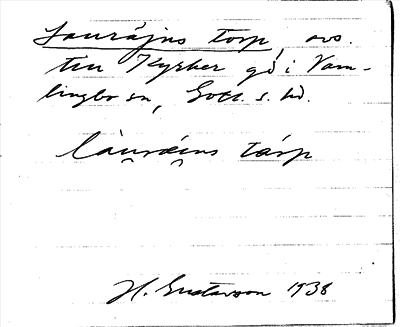 Lauräjns torp, avs.
till Kyrker gd i Vam-
lingbo sn, Gotl. s. hd.
làuräins tárp
H. Gustavson 1938